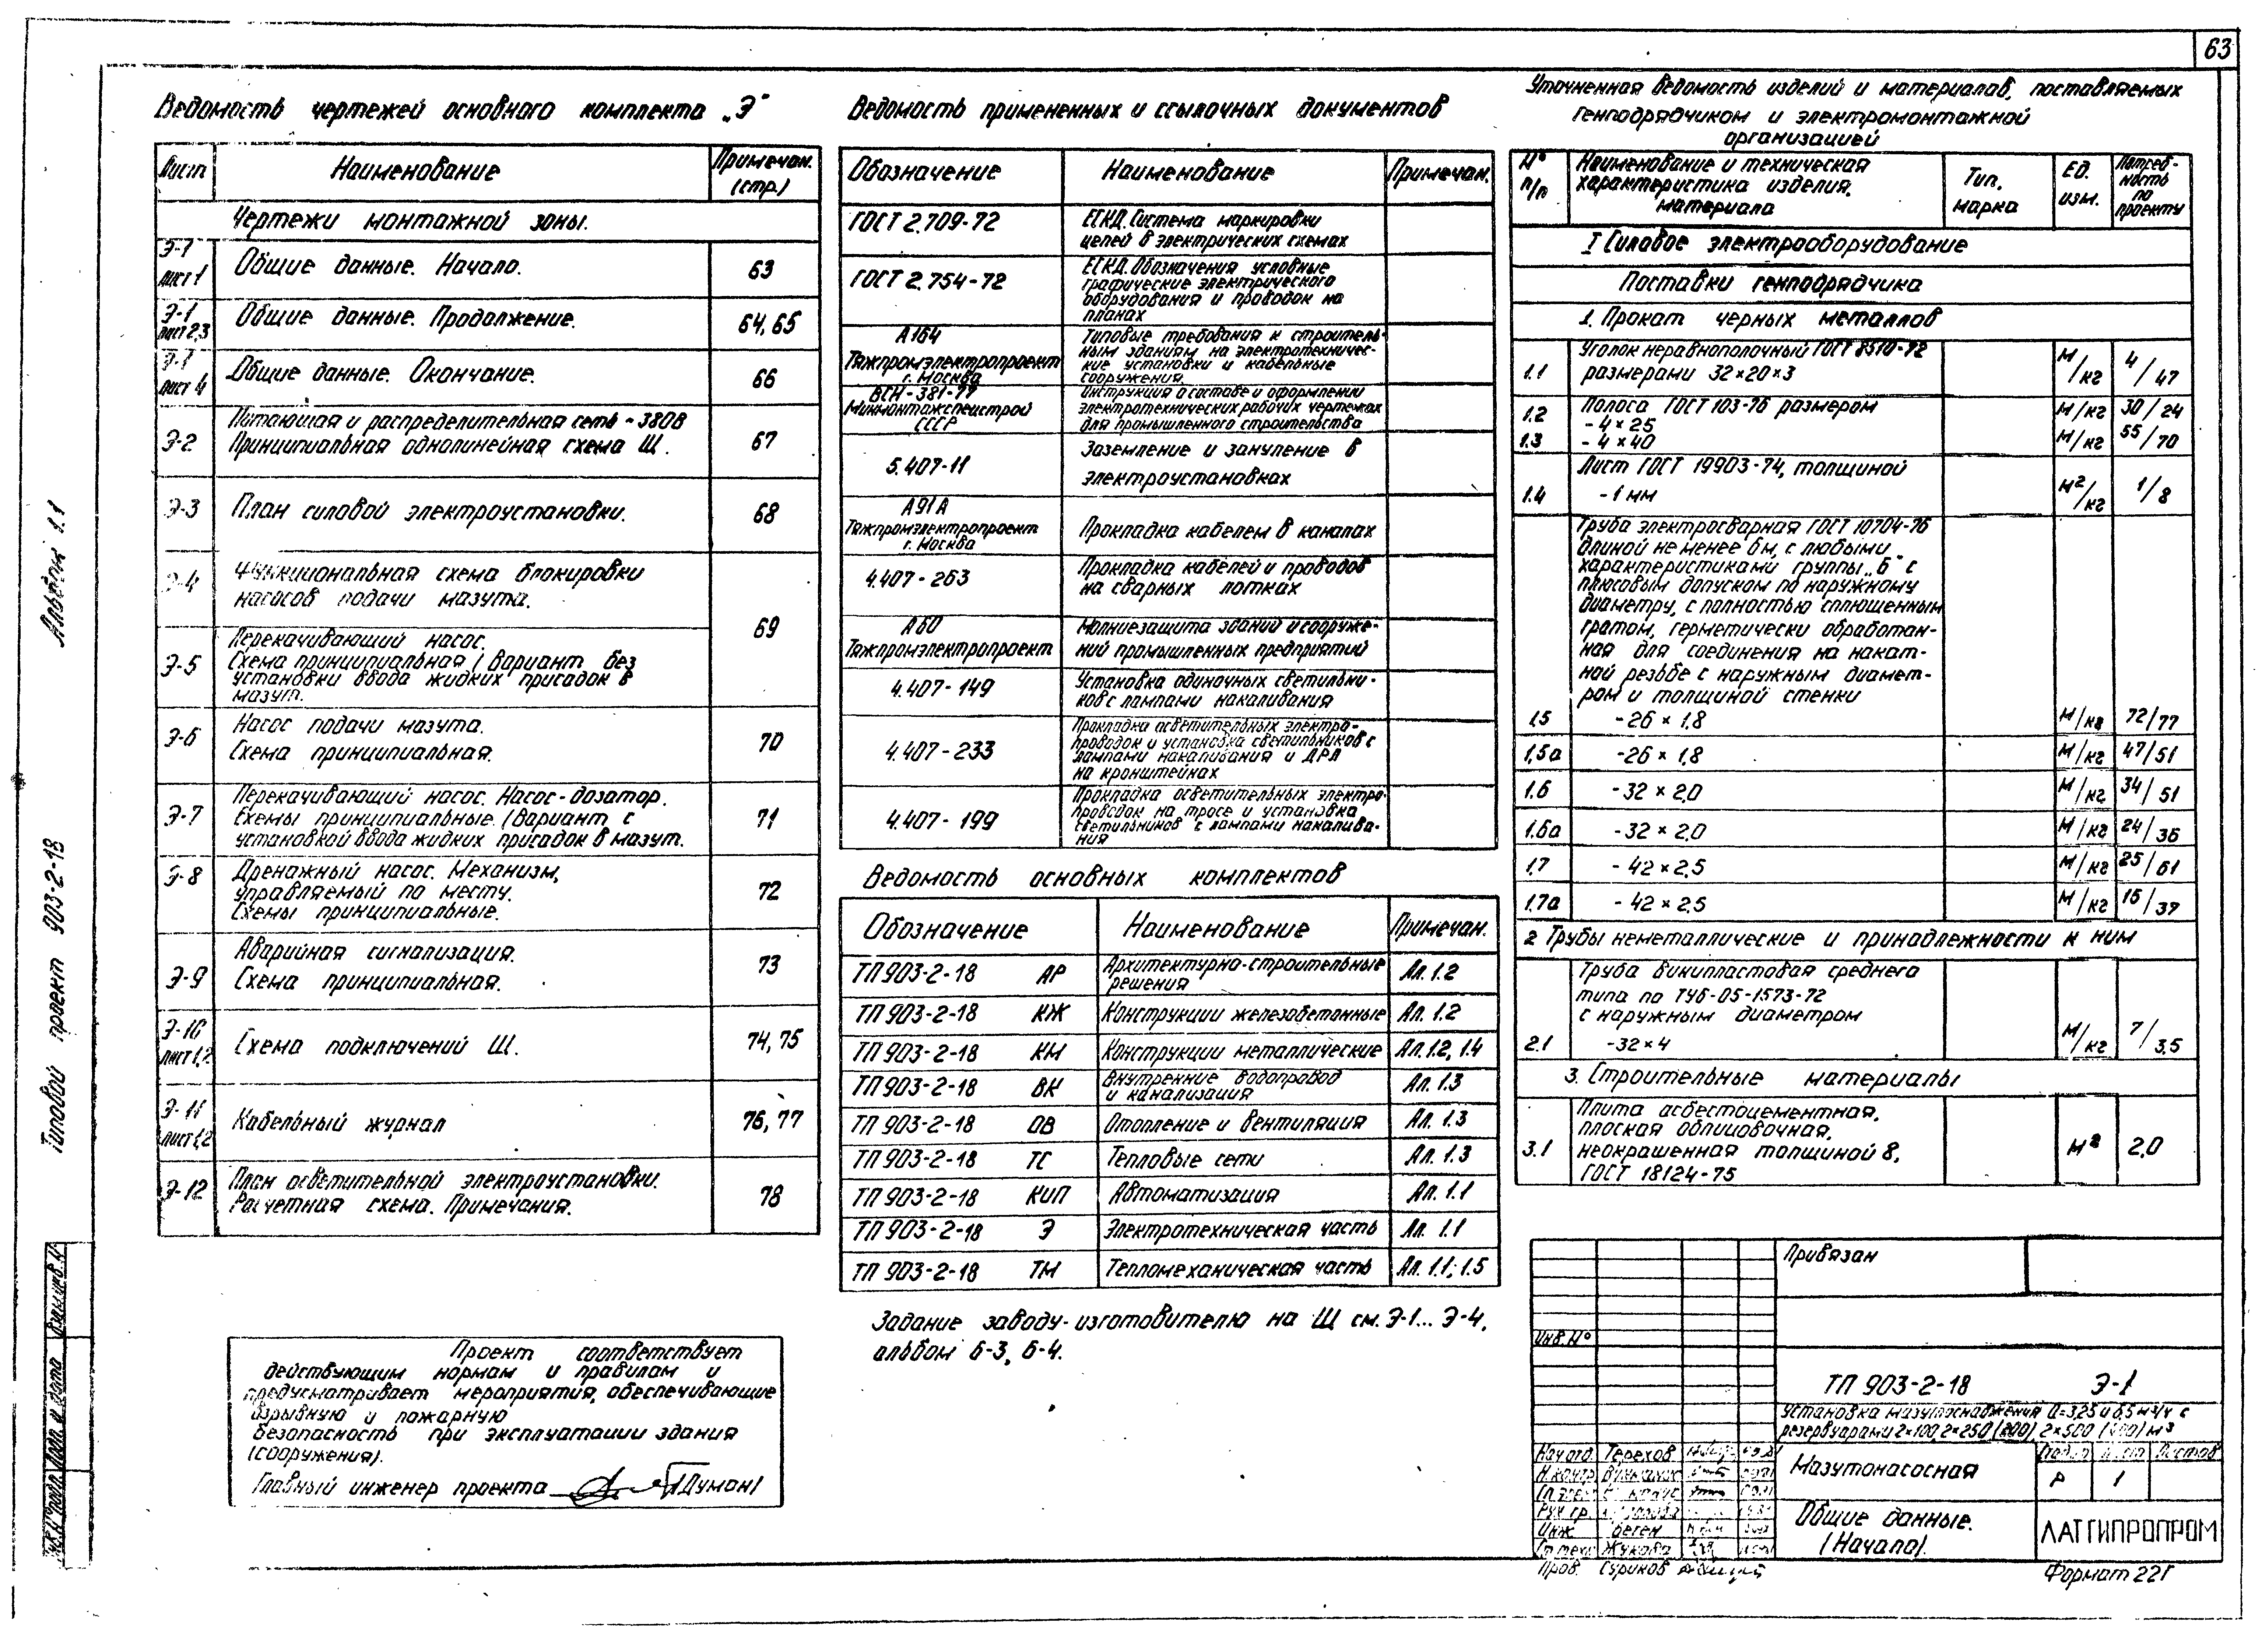 63
Ведомость чертежей основного комплекта „Э"
Лист
Наименование
Примечан.
(стр.)
Чертежи монтажной зоны.
Э-1
лист 1
Общие данные. Начало.
63
Э-1
лист 2,3
Общие данные. Продолжение.
64, 65
Э-1
лист 4
Общие данные. Окончание.
66
Э-2
Питающая и распределительная сеть ~380В
Принципиальная однолинейная схема Щ.
67
Э-3
План силовой электроустановки.
68
Э-4
Функциональная схема блокировки
насосов подачи мазута.
69
Э-5
Перекачивающий насос.
Схема принципиальная (вариант без
установки ввода жидких присадок в
мазут.
Э-6
Насос подачи мазута.
Схема принципиальная.
70
Э-7
Перекачивающий насос. Насос-дозатор.
Схемы принципиальные. (Вариант с
установкой ввода жидких присадок в мазут.
71
Э-8
Дренажный насос. Механизм,
управляемый по месту.
Схемы принципиальные.
72
Э-9
Аварийная сигнализация.
Схема принципиальная.
73
Э-10
лист 1,2
Схема подключений Щ.
74, 75
Э-11
лист 1,2
Кабельный журнал
76, 77
Э-12
План осветительной электроустановки.
Расчетная схема. Примечания.
78
Проект соответствует
действующим нормам и правилам и
предусматривает мероприятия, обеспечивающие
взрывную и пожарную
безопасность при эксплуатации здания
(сооружения).
Главный инженер проекта (Думан)
Ведомость примененных и ссылочных документов
Обозначение
Наименование
Примечан.
ГОСТ 2.709-72
ЕСКД. Система маркировки
цепей в электрических схемах
ГОСТ 2.754-72
ЕСКД. Обозначения условные
графические электрического
оборудования и проводок на
планах
А164
Тяжпромэлектропроект
г. Москва
Типовые требования к строитель-
ным зданиям на электротехничес-
кие установки и кабельные
сооружения.
ВСН-381-77
Минмонтажспецстрой
СССР
Инструкция о составе и оформлении
электротехнических рабочих чертежах
для промышленного строительства
5.407-11
Заземление и зануление в
электроустановках
А91А
Тяжпромэлектропроект
г. Москва
Прокладка кабелем в каналах
4.407-263
Прокладка кабелей и проводов
на сварных лотках
А60
Тяжпромэлектропроект
Молниезащита зданий и сооруже-
ний промышленных предприятий
4.407-149
Установка одиночных светильни-
ков с лампами накаливания
4.407-233
Прокладка осветительных электро-
проводок и установка светильников с
лампами накаливания и ДРЛ
на кронштейнах
4.407-199
Прокладка осветительных электро-
проводок на тросе и установка
светильников с лампами накалива-
ния
Ведомость основных комплектов
Обозначение
Наименование
Примечан.
ТП 903-2-18 АР
Архитектурно-строительные
решения
Ал. 1.2
ТП 903-2-18 КЖ
Конструкции железобетонные
Ал. 1.2
ТП 903-2-18 КМ
Конструкции металлические
Ал. 1.2, 1.4
ТП 903-2-18 ВК
Внутренние водопровод
и канализация
Ал. 1.3
ТП 903-2-18 ОВ
Отопление и вентиляция
Ал. 1.3
ТП 903-2-18 ТС
Тепловые сети
Ал. 1.3
ТП 903-2-18 КИП
Автоматизация
Ал. 1.1
ТП 903-2-18 Э
Электротехническая часть
Ал. 1.1
ТП 903-2-18 ТМ
Тепломеханическая часть
Ал. 1.1; 1.5
Задание заводу-изготовителю на Щ см. Э-1... Э-4,
альбом 6-3, 6-4.
Уточненная ведомость изделий и материалов, поставляемых
генподрядчиком и электромонтажной
организацией
N°
п/п
Наименование и техническая
характеристика изделия,
материала
Тип,
марка
Ед.
изм.
Потреб-
ность
по
проекту
I Силовое электрооборудование
Поставки генподрядчика
1. Прокат черных металлов
1.1
Уголок неравнополочный ГОСТ 8510-72
размерами 32×20×3
м/кг
4/47
1.2
Полоса ГОСТ 103-76 размером
- 4×25
м/кг
30/24
1.3
- 4×40
м/кг
55/70
Лист ГОСТ 19903-74, толщиной
1.4
- 1 мм
м²/кг
1/8
Труба электросварная ГОСТ 10704-76
длиной не менее 6м, с любыми
характеристиками группы „Б" с
плюсовым допуском по наружному
диаметру, с полностью сплющенным
гратом, герметически обработан-
ная для соединения на накат-
ной резьбе с наружным диамет-
ром и толщиной стенки
1.5
-26×1,8
м/кг
72/77
1,5а
-26×1,8
м/кг
47/51
1.6
-32×2,0
м/кг
34/51
1.6а
-32×2,0
м/кг
24/36
1.7
- 42×2,5
м/кг
25/61
1.7а
- 42×2,5
м/кг
16/39
2 Трубы неметаллические и принадлежности к ним
Труба винипластовая среднего
типа по ТУ6-05-1573-72
с наружным диаметром
2.1
-32×4
м/кг
7/3.5
3. Строительные материалы
3.1
Плита асбестоцементная,
плоская облицовочная,
неокрашенная толщиной 8,
ГОСТ 18124-75
м²
2,0
Привязан
Инв. N°
ТП 903-2-18 Э-1
Установка мазутоснабжения Q=3,25 и 6,5 м³/ч с
резервуарами 2×100, 2×250 (200), 2×500 (400) м³
Мазутонасосная
Лист
Листов
Р
1
Общие данные.
(Начало).
ЛАТГИПРОПРОМ
Нач. отд. Терехов
Н. контр.
Рук. гр.
Инж Беген
Ст. техн. Жукова
Пров. Суриков
Формат 22Г
Альбом 1.1
Типовой проект 903-2-18
Взам. инв. N
Подп. и дата
Инв. N° подл.